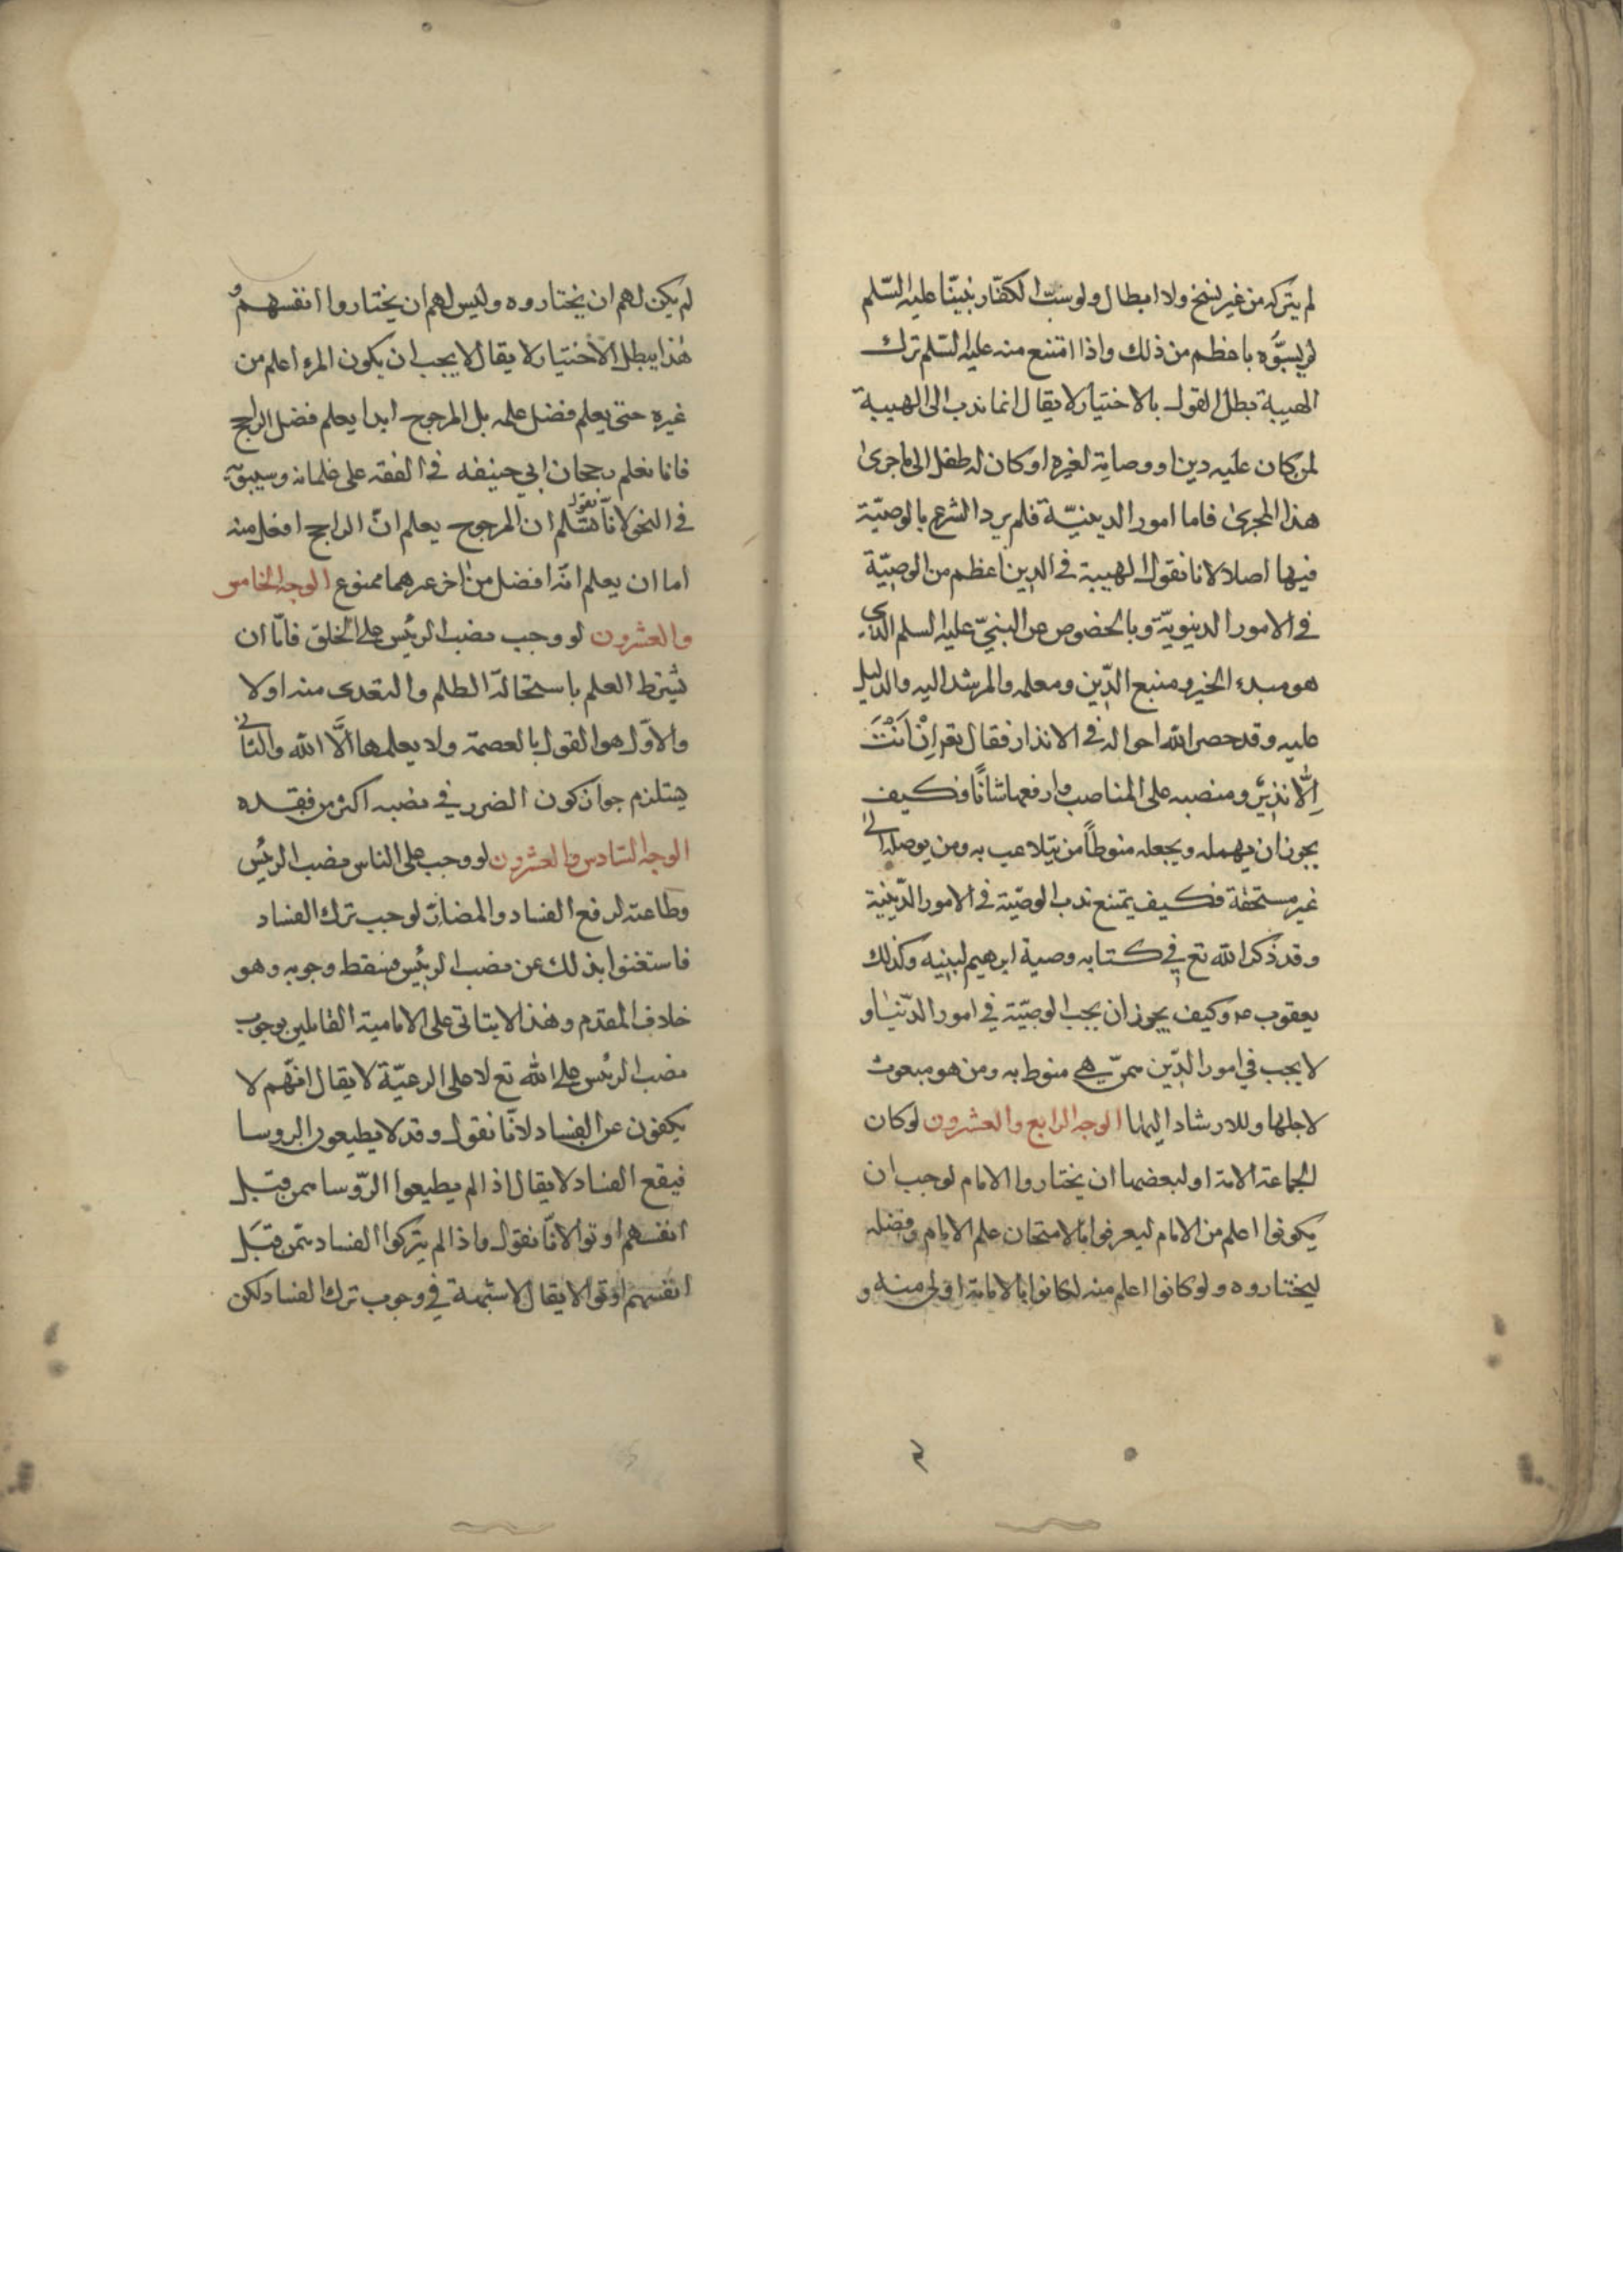 لم يتركه من غير نسخ ولا ابطال ولو سبّ الكفّار نبيّنا عليه السّلم
لم يسبّوه باعظم من ذلك واذا امتنع منه عليه السّلم ترك
الهيبة بطل القول بالاختيار لا يقال انما ندب الى الهيبة
لمن كان عليه دين او وصاية لغيره او كان له طفل الى ما جرى
هذا المجرى فاما امور الدينيّة فلم يرد الشرع بالوصيّة
فيها اصلا لانا نقول الهيبة في الدين اعظم من الوصيّة
في الامور الدنيويّة وبالخصوص عن النبيّ عليه السلم الذي
هو مبدء الخير ومنبع الدّين ومعلمه والمرشد اليه والدليل
عليه وقد حصر الله احواله في الانذار فقال تع اِنْ اَنْتَ
اِلّا نذيرٌ ومنصبه على المناصب وارفعها شانًا فكيف
يجوز ان يهمله ويجعله منوطاً من يتلاعب به ومن يوصله الى
غير مستحقه فكيف يمتنع ندب الوصيّة في الامور الدّينية
وقد ذكر الله تع في كتابه وصية ابرهيم لبنيه وكذلك
يعقوب ع وكيف يجوز ان يجب الوصيّة في امور الدّنيا و
لا يجب في امور الدّين ممّن هي منوط به ومن هو مبعوث
لاجلها وللارشاد اليها الوجه الرابع والعشرون لو كان
لجماعة الامة او لبعضها ان يختاروا الامام لوجب ان
يكونوا اعلم من الامام ليعرفوا بالامتحان علم الامام وفضله
ليختاروه ولو كانوا اعلم منه لكانوا بالامامة اولى منه و
لم يكن لهم ان يختاروه وليس لهم ان يختاروا انفسهم و
هذا يبطل الاختيار لا يقال لا يجب ان يكون المرء اعلم من
غيره حتى يعلم فضل علمه بل المرجوح ابدا يعلم فضل الراجح
فانا نعلم رجحان ابي حنيفه في الفقه على غلمانه وسيبويه
في النحو لانّا نقول نسّلم ان المرجوح يعلم انّ الراجح افضل منه
اما ان يعلم انّه افضل من اخر غيرهما ممنوع الوجه الخامس
والعشرون لو وجب نصب الرئيس على الخلق فامّا ان
يشترط العلم باستحالة الظلم والتعدى منه اولا
والاوّل هو القول بالعصمة ولا يعلمها الّا الله والثانى
يستلزم جواز كون الضرر في نصبه اكثر من فقده
الوجه السّادس والعشرون لو وجب على الناس نصب الرئيس
وطاعته لرفع الفساد والمضارّ لوجب ترك الفساد
فاستغنوا بذلك عن نصب الرئيس فسقط وجوبه وهو
خلاف المقدّم وهذا لا يتاتى على الامامية القائلين بوجوب
نصب الرئيس على الله تع لا على الرعيّة لا يقال انّهم لا
يكفون عن الفساد لانّا نقول وقد لا يطيعون الروسا
فيقع الفساد لا يقال اذا لم يطيعوا الرّوسا فمن قبل
انفسهم اوتوا لانّا نقول واذا لم يتركوا الفساد فمن قبَل
انفسهم اوتوا لا يقال لا شبهة في وجوب ترك الفساد لكن